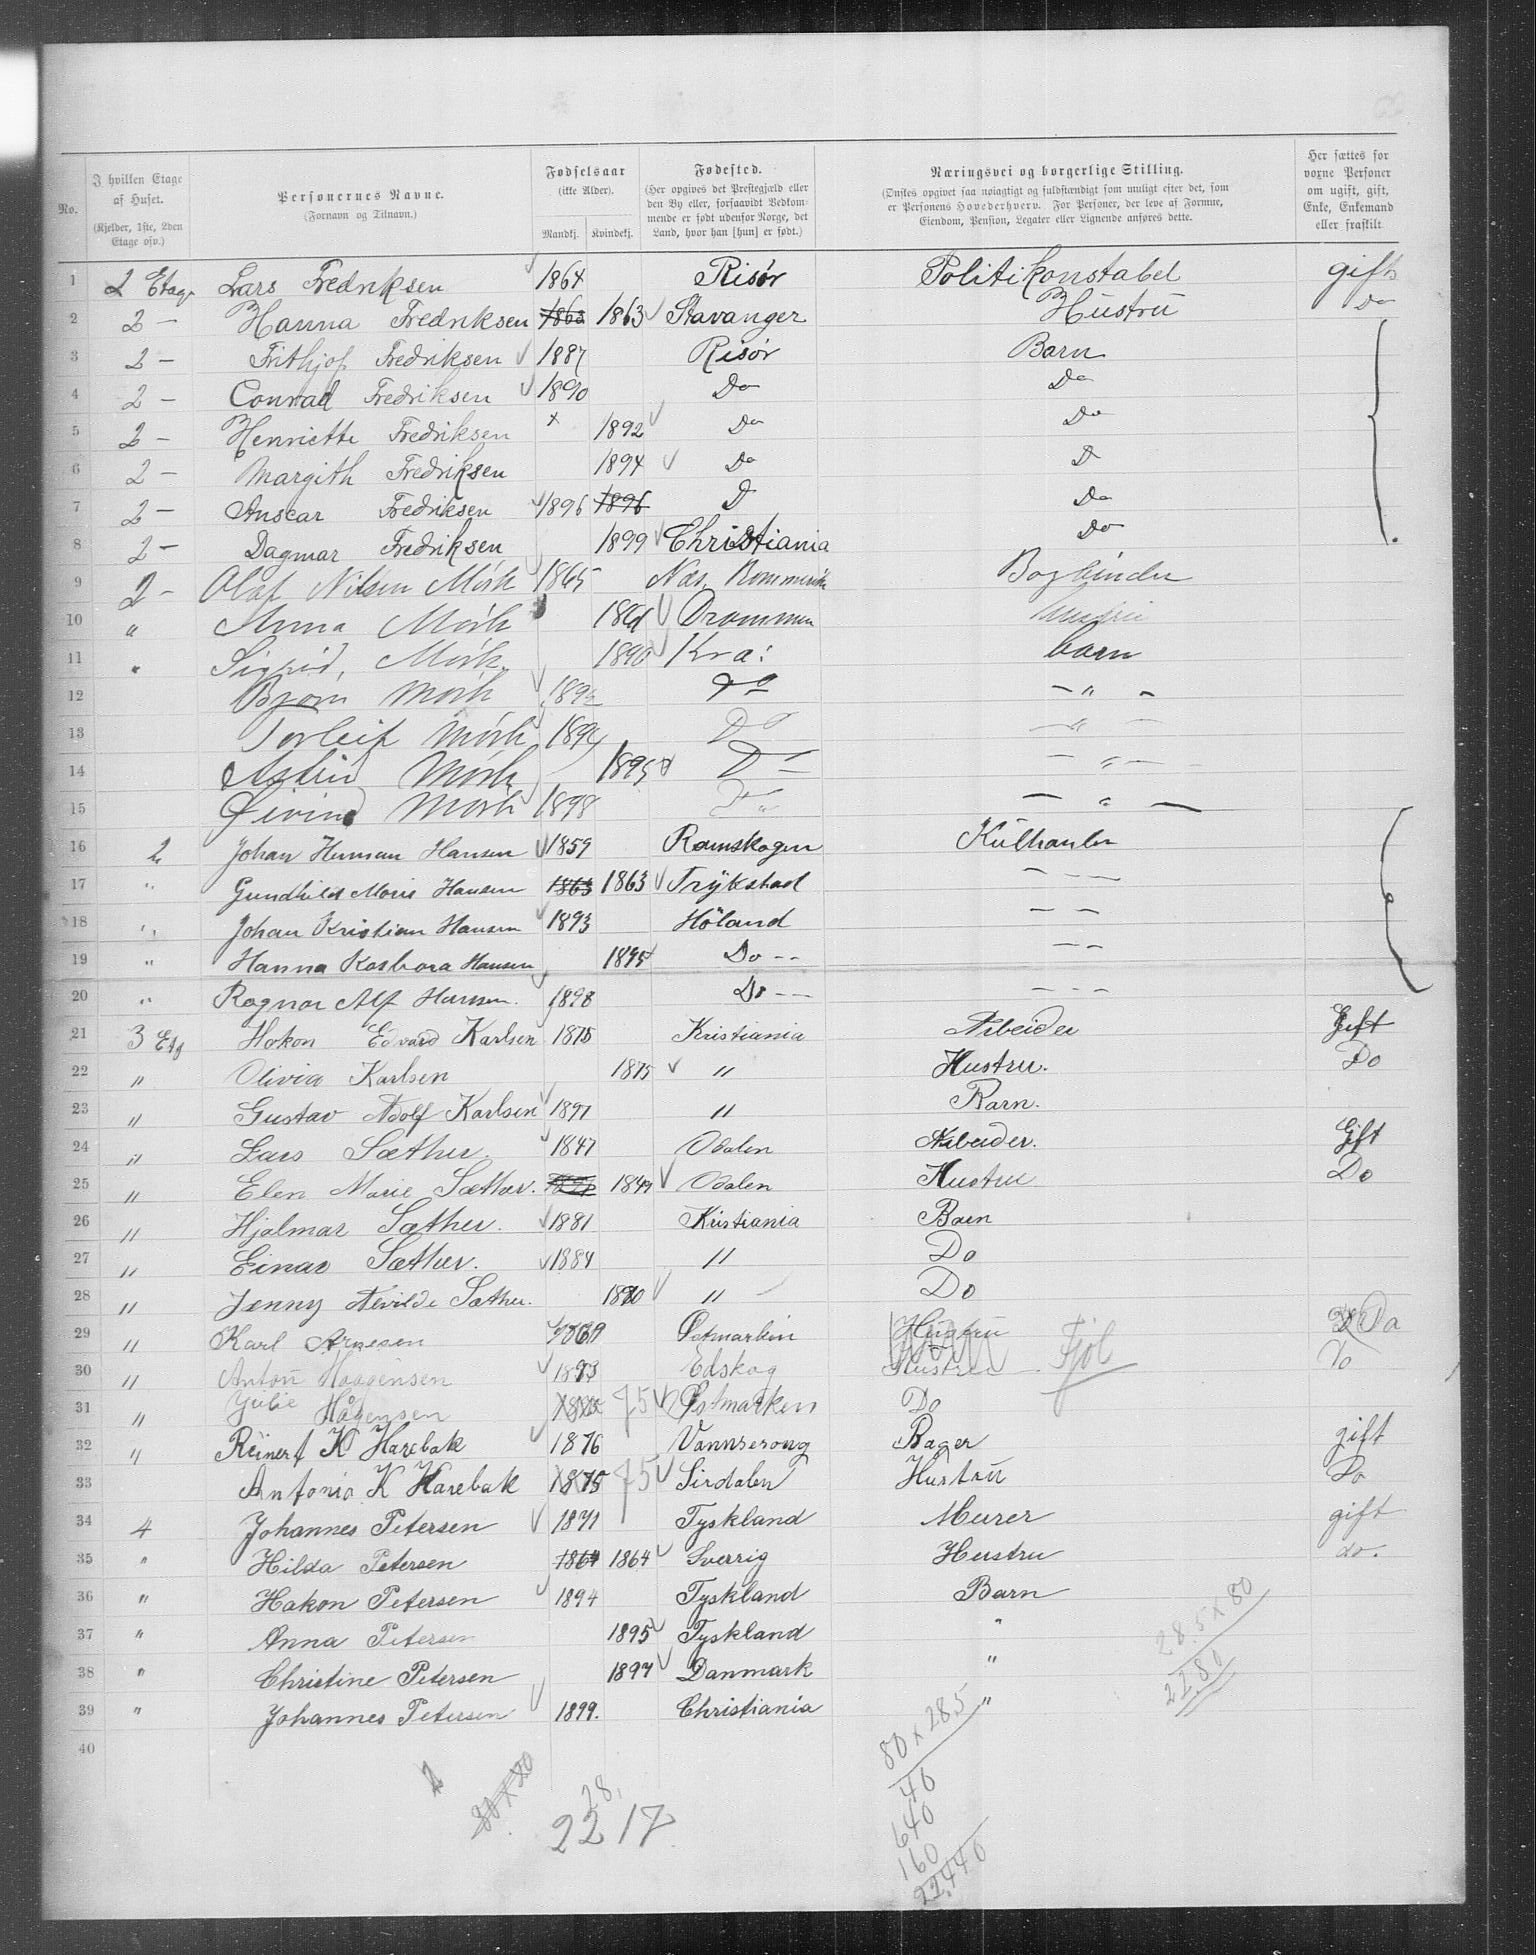 No.
I hvilken Etage af Huset. (Kjelder, 1ste, 2den Etage osv.)
Personernes Navne. (Fornavn og Tilnavn.)
Fødselsaar (ikke Alder). Mandkj. Kvindekj.
Fødested. (Her opgives det Prestegjæld eller den By eller, forsaavidt Vedkommende er født udenfor Norge, det Land, hvor han [hun] er født.)
Næringsvei og borgerlige Stilling. (Ønskes opgivet saa nøiagtigt og fuldstændigt som muligt efter det, som er Personens Hovederhverv. For Personer, der leve af Formue, Eiendom, Pension, Legater eller Lignende anføres dette.)
Her sættes for voxne Personer om ugift, gift, Enke, Enkemand eller fraskilt
1 2 Etage Lars Fredriksen 1864 Risør Politikonstabel gift
2 2 — Hanna Fredriksen 1863 1863 Stavanger Hustru Do
3 2 — Frithjof Fredriksen 1887 Risør Barn
4 2 — Conrad Fredriksen 1890 Do Do
5 2 — Henriette Fredriksen 1892 Do Do
6 2 — Margith Fredriksen 1894 Do D
7 2 — Anscar Fredriksen 1896 1896 D Do
8 2 — Dagmar Fredriksen 1899 Christiania Do
9 2 — Olaf Nilsen Mørk 1865 Næs, Rommerike Bogbinder
10 " Anna Mørk Drammen hustru
11 " Sigrid, Mørk 1890 Kra: barn
12 Bjørn Mørk Do — " —
13 Torleif Mørk 1894 Do — " —
14 Astrid Mørk 1895 D — — " —
15 Øivind Mørk 1898 — " —
16 2 Johan Herman Hansen 1859 Rømskogen Kulhandler
17 " Gundhild Marie Hansen 1863 1863 Trykstad — — —
18 " Johan Kristian Hansen 1893 Høland — —
19 " Hanna Hansen 1895 Do -- — —
20 " Ragnar Alf Hansen. 1898 Do -- — — —
21 3 Etg Hokon Edvard Karlsen 1875 Kristiania Arbeider Gift
22 " Olivia Karlsen 1875 " Hustru. Do
23 " Gustav Adolf Karlsen 1897 " Barn.
24 " Lars Sæther. 1847 Odalen Arbeider. Gift
25 " Elen Marie Sæther. 1849 Odalen Hustru Do
26 " Hjalmar Sæther. 1881 Kristiania Barn
27 " Einar Sæther. 1884 " Do
28 " Jenny Alvilde Sæther. 1890 " Do
29 " Karl Arnesen 1869 Østmarken Hustru Fjøl Do
30 " Anton Haagensen 1873 Edskog Hustru Do
31 " Julie Hågensen 75 Østmarken Do
32 " Reinert K Harebak 1876 Vannserong Bager gift
33 Antonie K Harebak 1875 75 Sirdalen Hustru Do
34 4 Johannes Petersen 1871 Tyskland Murer gift
35 " Hilda Petersen 1864 1864 Sverrig Hustru do.
36 " Hakon Petersen 1894 Tyskland Barn
37 " Anna Petersen 1895 Tyskland "
38 " Christine Petersen 1897 Danmark "
39 " Johannes Petersen 1899. Christiania "
40
28.5 x 80
22.80
80 x 28.5
40
640
160
22.440
80 x 80
28.
22 17